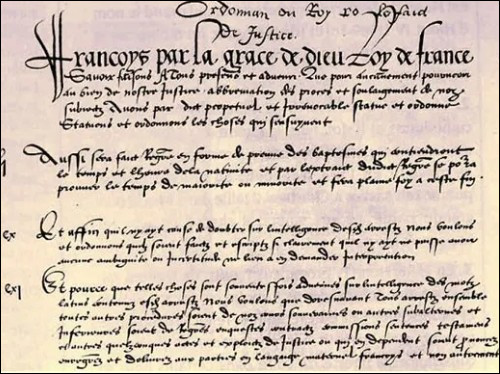 Ordonnan du Roy
De Justice.
Francoys par la grace de dieu Roy de france
Savoir faisons A Tous presens et advenir Que pour aucunement pourveoir
au bien de nostre Justice abbreviation des proces et soulagement de noz
subiectz Avons par dit perpetuel et irrevocable statue et ordonne
Statuons et ordonnons les choses qui sensuyvent
Aussi sera faict Regre en forme de preuve des baptesmes qui contiendront
le temps et lheure dela nativite et par lextraict dudict Regre se po ra
prouver le temps de maiorite ou minorite et fera plaine foy a ceste fin
cx Et affin quil ny ayt cause de doubter sur lintelligence desdz arrestz Nous voulons
et ordonnons quilz soient faictz et escriptz si clairement quil ny ayt ne puisse avoir
aucune ambiguite ou incertitude ne lieu a en demander Interpretation
cxi Et pource que telles choses sont souventesfois advenues sur lintelligence des motz
latins contenuz esdz arrestz Nous voulons que doresnavant Tous arrestz ensemble
toutes autres procedures soient de noz cours souveraines ou autres subalternes et
Inferieures soient de Regres enquestes contractz commissions sentences testamens
et autres quelzconques actes et exploictz de Justice ou qui en dependent soient prononcez
enregrez et delivrez aux parties en langage maternel francoys et non autrement